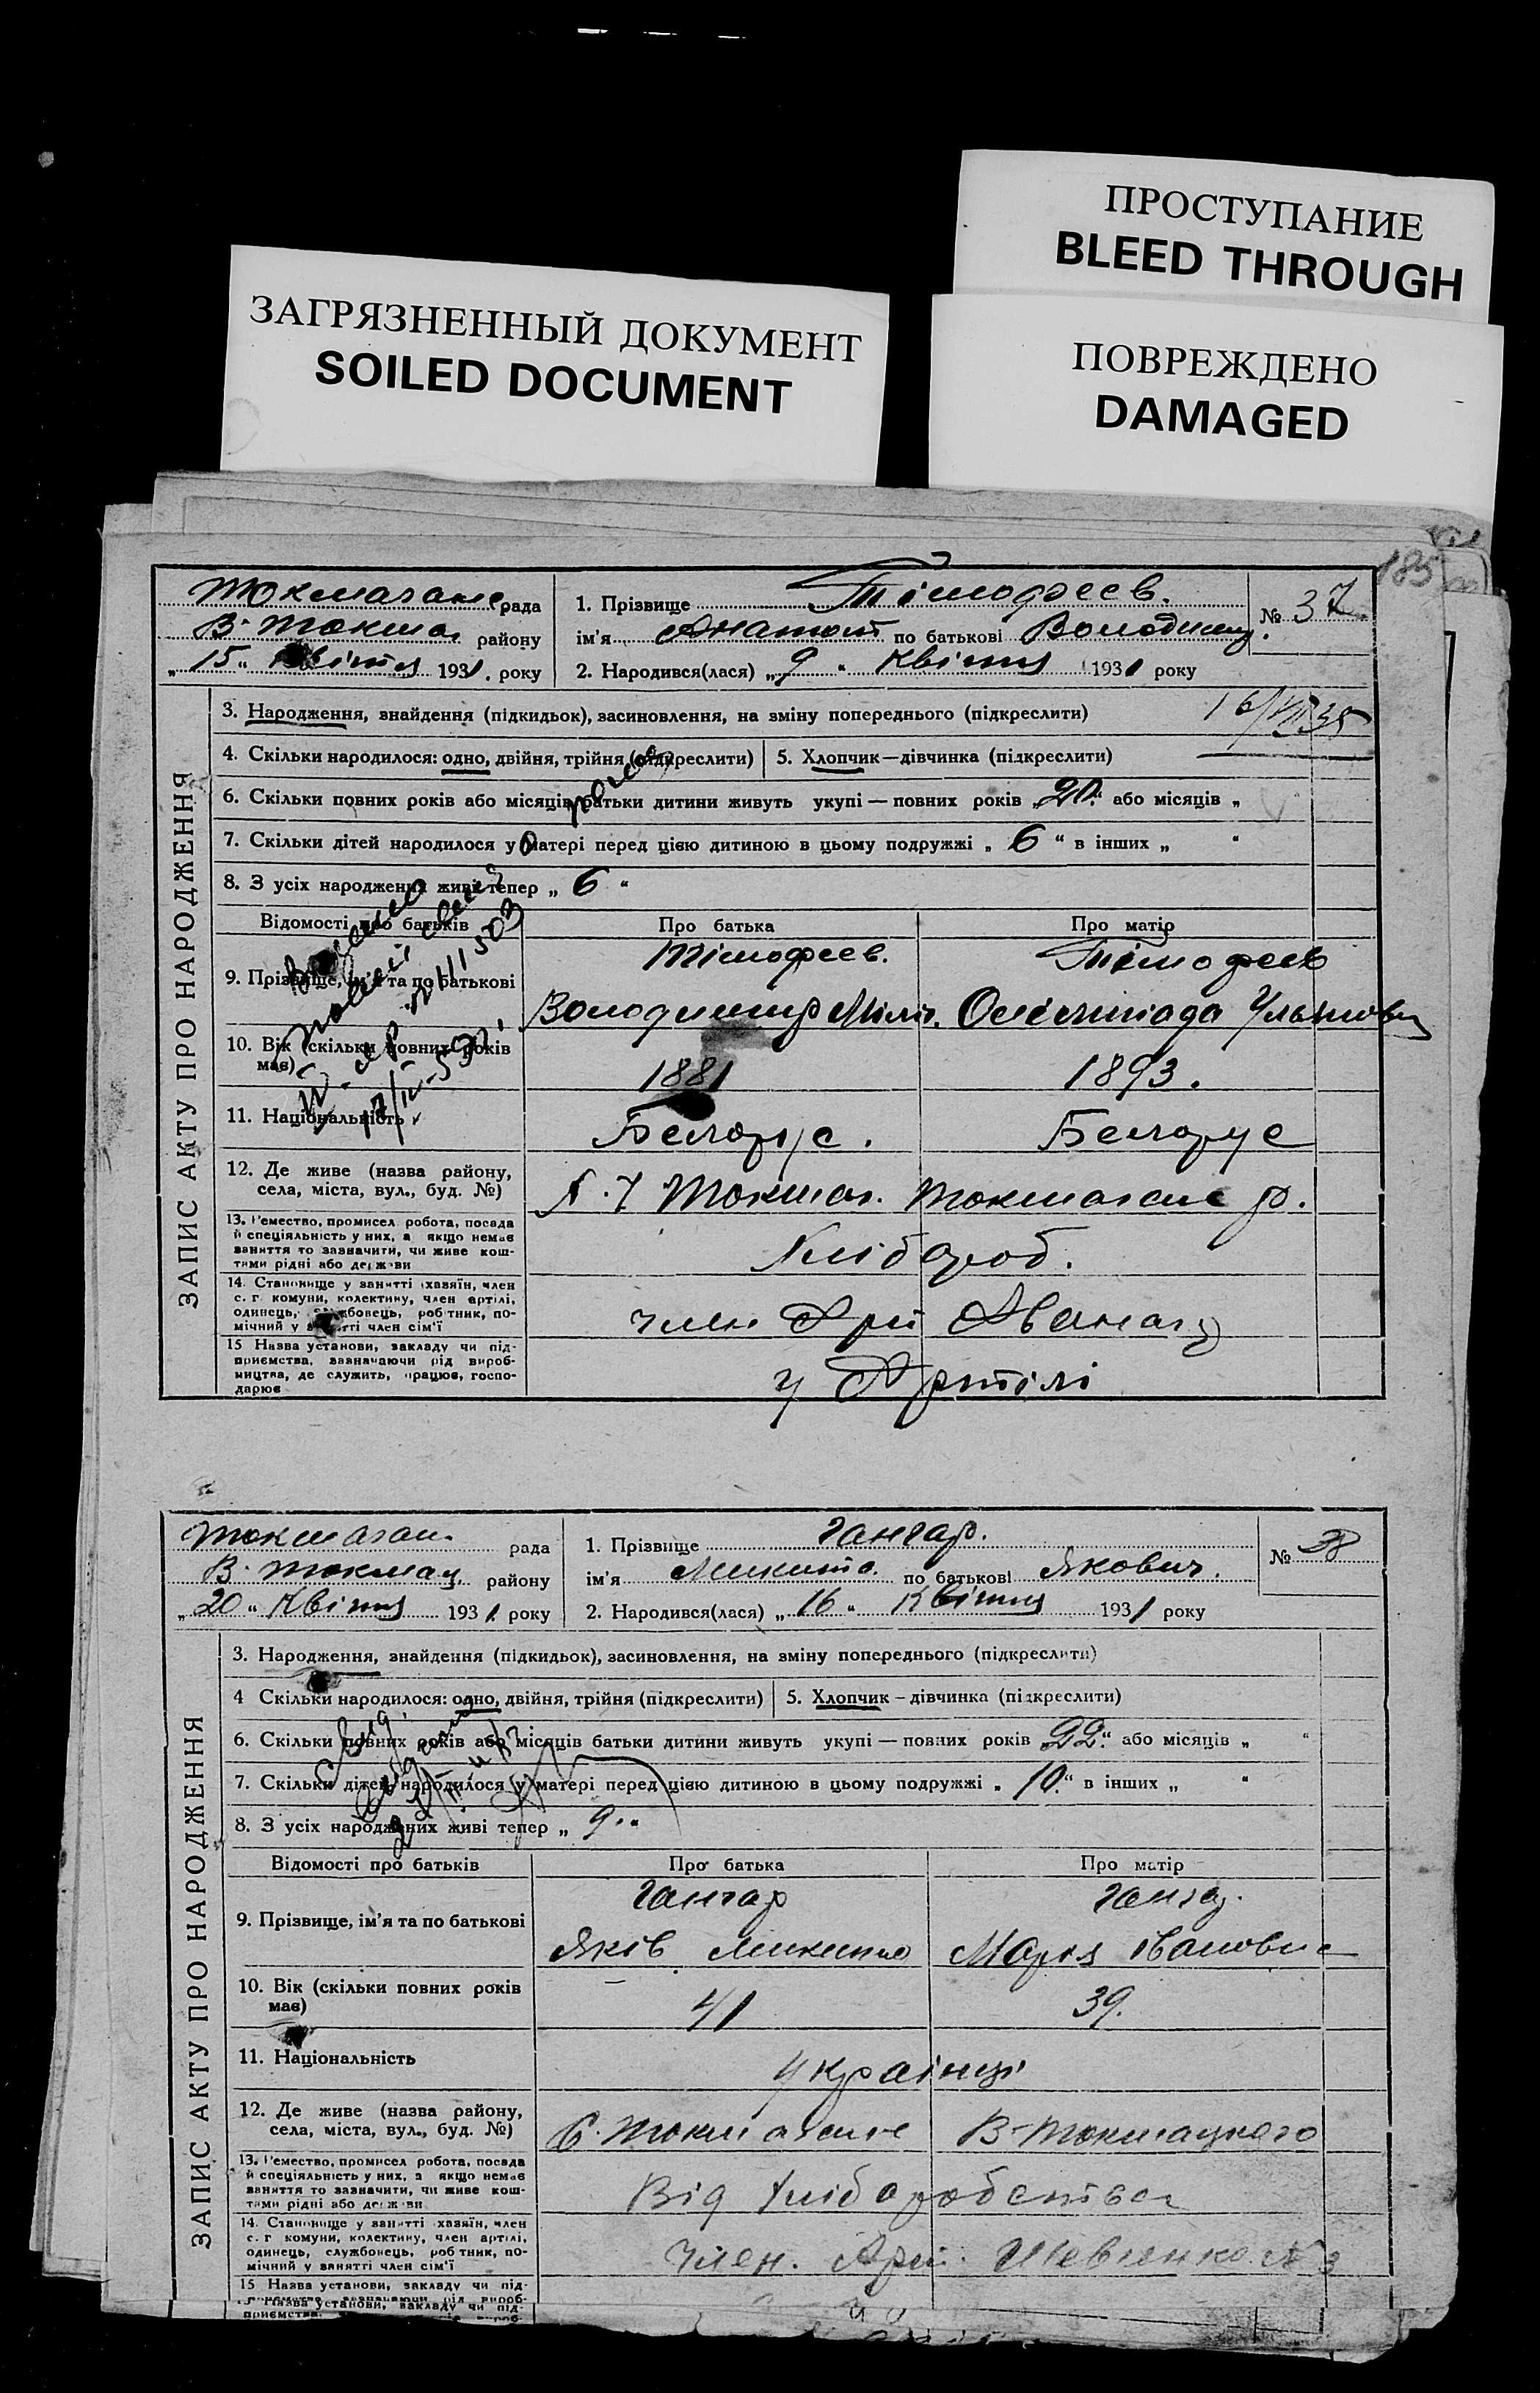 ПРОСТУПАНИЕ
BLEED THROUGH
ЗАГРЯЗНЕННЫЙ ДОКУМЕНТ
SOILED DOCUMENT
ПОВРЕЖДЕНО
DAMAGED
185
рада
В. Токма. району
„15“ Квітня 1931. року
1. Прізвище Тімофеев.
ім'я Анатолі по батькові Володимир.
№ 37
2. Народився(лася) „9“ Квітня 1931 року
ЗАПИС АКТУ ПРО НАРОДЖЕННЯ
3. Народження, знайдення (підкидьок), засиновлення, на зміну попереднього (підкреслити)
16/VII 35
4. Скільки народилося: одно, двійня, трійня (підкреслити) 5. Хлопчик—дівчинка (підкреслити)
6. Скільки повних років або місяців батьки дитини живуть укупі — повних років „20.“ або місяців „ “
7. Скільки дітей народилося у матері перед цією дитиною в цьому подружжі „ 6 “ в інших „ “
8. З усіх народжених живі тепер „ 6 “
Відомості про батьків Про батька Про матір
9. Прізвище, ім'я та по батькові
Тімофеев. Тімофеев
Володимир
10. Вік (скільки повних років має)
1881 1893.
11. Національність
Белорус. Белорус
12. Де живе (назва району, села, міста, вул., буд. №)
13. Ремество, промисел робота, посада
й спеціяльність у них, а якщо немає
заняття то зазначити, чи живе кош-
тами рідні або держави
Хлібороб.
14. Становище у занятті хазяїн, член
с. г. комуни, колективу, член артілі,
одинець, службовець, робітник, по-
мічний у занятті член сім'ї
член
15 Назва установи, закладу чи під-
приємства, зазначаючи рід вироб-
ництва, де служить, працює, госпо-
дарює
у Артілі
Токмачан. рада
В. Токмац. району
„20“ Квітня 1931. року
1. Прізвище Гангар.
ім'я Микита. по батькові Якович.
№ 38
2. Народився(лася) „16“ Квітня 1931 року
ЗАПИС АКТУ ПРО НАРОДЖЕННЯ
3. Народження, знайдення (підкидьок), засиновлення, на зміну попереднього (підкреслити)
4 Скільки народилося: одно, двійня, трійня (підкреслити) 5. Хлопчик – дівчинка (підкреслити)
6. Скільки повних років або місяців батьки дитини живуть укупі — повних років „22.“ або місяців „ “
7. Скільки дітей народилося у матері перед цією дитиною в цьому подружжі „ 10.“ в інших „ “
8. З усіх народжених живі тепер „ 9. “
Відомості про батьків Про батька Про матір
9. Прізвище, ім'я та по батькові
Гангар
Яків Микит Марія Івановна
10. Вік (скільки повних років має)
41 39.
11. Національність
Українці
12. Де живе (назва району, села, міста, вул., буд. №)
В-Токмацкого
13. Ремество, промисел робота, посада
й спеціяльність у них, а якщо немає
заняття то зазначити, чи живе кош-
тами рідні або держави
Від Хліборобства
14. Становище у занятті хазяїн, член
с. г. комуни, колективу, член артілі,
одинець, службовець, робітник, по-
мічний у занятті член сім'ї
член. Арт. Шевченко № 3
15 Назва установи, закладу чи під-
Назва установи, закладу чи під-
приємства